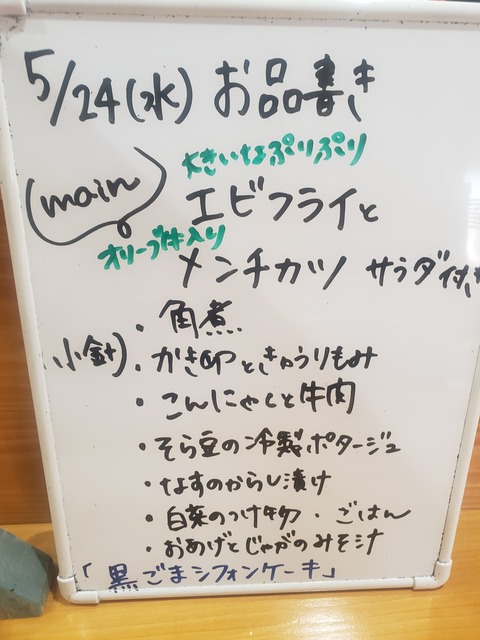 5/24(水) お品書き
大きいなぷりぷり
(main) エビフライと
オリーブ牛入り
メンチカツ サラダ付き
・角煮
小針) ・かき卵ときゅうりもみ
・こんにゃくと牛肉
・そら豆の冷製ポタージュ
・なすのからし漬け
・白菜のつけ物 ・ごはん
・おあげとじゃがのみそ汁
「黒ごまシフォンケーキ」